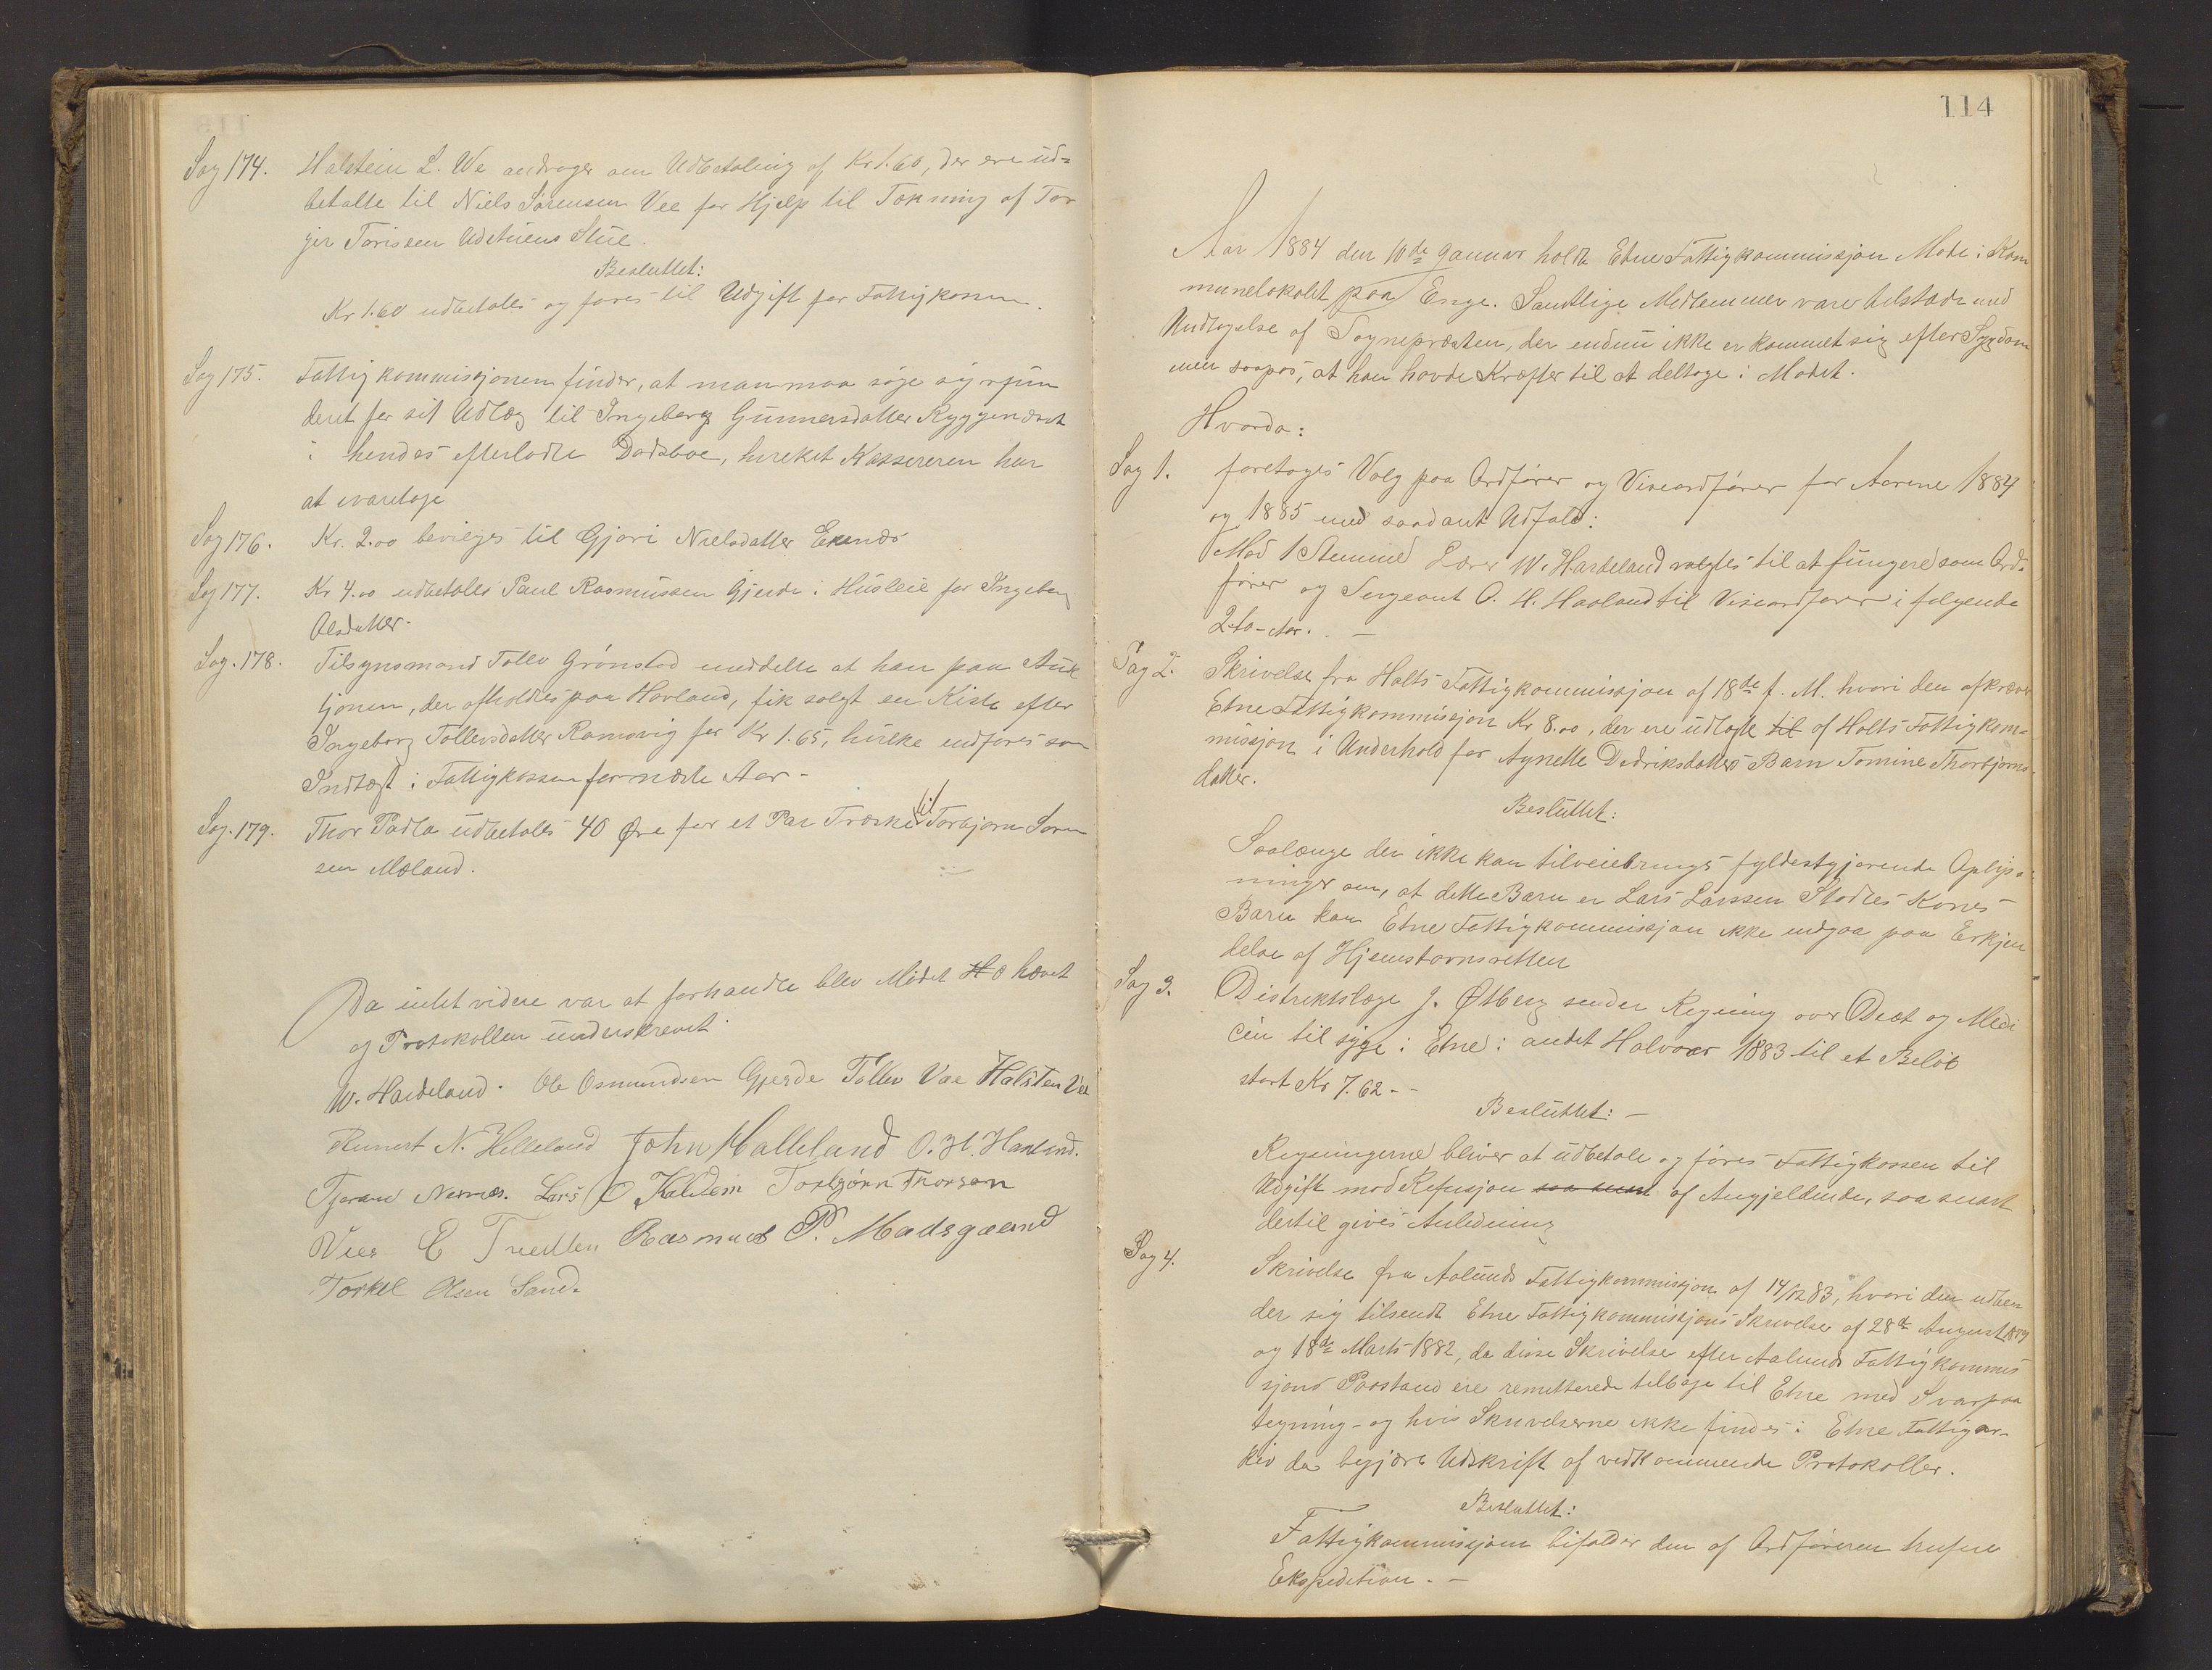 Sag 174. Halstein L. We andrager om Udbetaling af Kr 1.60, der ere ud=
betalte til Niels Sørensen Vee for Hjelp til Tækning af Tor
ger Torissen Udetuens Stue.
Besluttet:
Kr 1.60 udbetales og føres til Udgift for Fattigkassen.
Sag 175. Fattigkommissjonen finder, at man maa søge sig refun
deret for sit Udlæg til Ingeborg Gunnersdatter Ryggenæset
i hendes efterladte Dødsboe, hvilket Kassereren har
at ivaretage
Sag 176. Kr. 2.00 bevilges til Gjøri Nielsdatter Ekenæs
Sag 177. Kr 4.00 udbetales Paul Rasmussen Gjerde i Husleie for Ingeborg
Olsdatter.
Sag. 178. Tilsynsmand Tollev Grønstad meddelte at han paa Auk
tjonen, der afholdtes paa Havland, fik solgt en Kiste efter
Ingeborg Tollevsdatter Ramsvig for Kr 1.65, hvilke indføres som
Indtægt i Fattigkassen for næste Aar -
Sag. 179. Thor Padla udbetales 40 Øre for et Par Træsko til Torbjørn Soren
sen Mæland.
Da intet videre var at forhandle blev Mødet hævet
og Protokollen underskrevet.
W. Hardeland. Ole Osmundsen Gjerde Tollev Vae Halsten Vee
N. Helleland John Halleland O. H. Havland.
Lars O Kaldem Torbjørn Thorsen
E Rasmus P. Madsgaard
Torkel Olsen Sand.
114
Aar 1884 den 10de Januar holdt Etne Fattigkommissjon Møde i Kom
munelokalet paa Enge. Samtlige Medlemmer vare tilstæde med
Undtagelse af Sognepræsten, der endnu ikke er kommet sig efter Sygdom
men saapas, at han havde Kræfter til at deltage i Mødet.
Hvorda:
Sag 1. foretoges Valg paa Ordfører og Viseordfører for Aarene 1884
og 1885 med saadant Udfald:
Mod 1 Stemme Lærer W. Hardeland valgtes til at fungere som Ord-
fører og Sergeant O. H. Havland til Viseordfører i følgende
2-to-Aar. -
Sag 2. Skrivelse fra Holts Fattigkommissjon af 18de f. M. hvori den afkræver
Etne Fattigkommissjon Kr 8.00, der ere udlagte til af Holts Fattigkom=
missjon i Underhold for Agnette Dedriksdatters Barn Tomine Thorbjørns-
datter.
Besluttet:
Saalænge der ikke kan tilveiebringes fyldestgjørende Oplys-
ninger om, at dette Barn er Lars Larssen Stødles Kones
Barn kan Etne Fattigkommissjon ikke indgaa paa Erkjen
delse af Hjemstavnsretten
Sag 3. Distriktslæge J. Østberg sender Regning over Diæt og Medi
cin til syge i Etne i andet Halvaar 1883 til et Beløb
stort Kr 7.62 - -
Besluttet: -
Regningerne bliver at udbetale og føres Fattigkassen til
Udgift mod Refusjon saa snart af Angjeldende, saa snart
dertil gives Anledning
Sag 4. Skrivelse fra Aalunds Fattigkommissjon af 14/12 83, hvori den udbe
der sig tilsendt Etne Fattigkommissjons Skrivelse af 28de August 1879
og 18de Marts 1882, da disse Skrivelse efter Aalunds Fattigkommis
sjons Paastand ere remitterede tilbage til Etne med Svarpaa
tegning - og hvis Skrivelserne ikke findes i Etne Fattigar-
kiv da begjære Udskrift af vedkommende Protokoller.
Besluttet:
Fattigkommissjonen bifalder den af Ordføreren trufne
Ekspedition. -